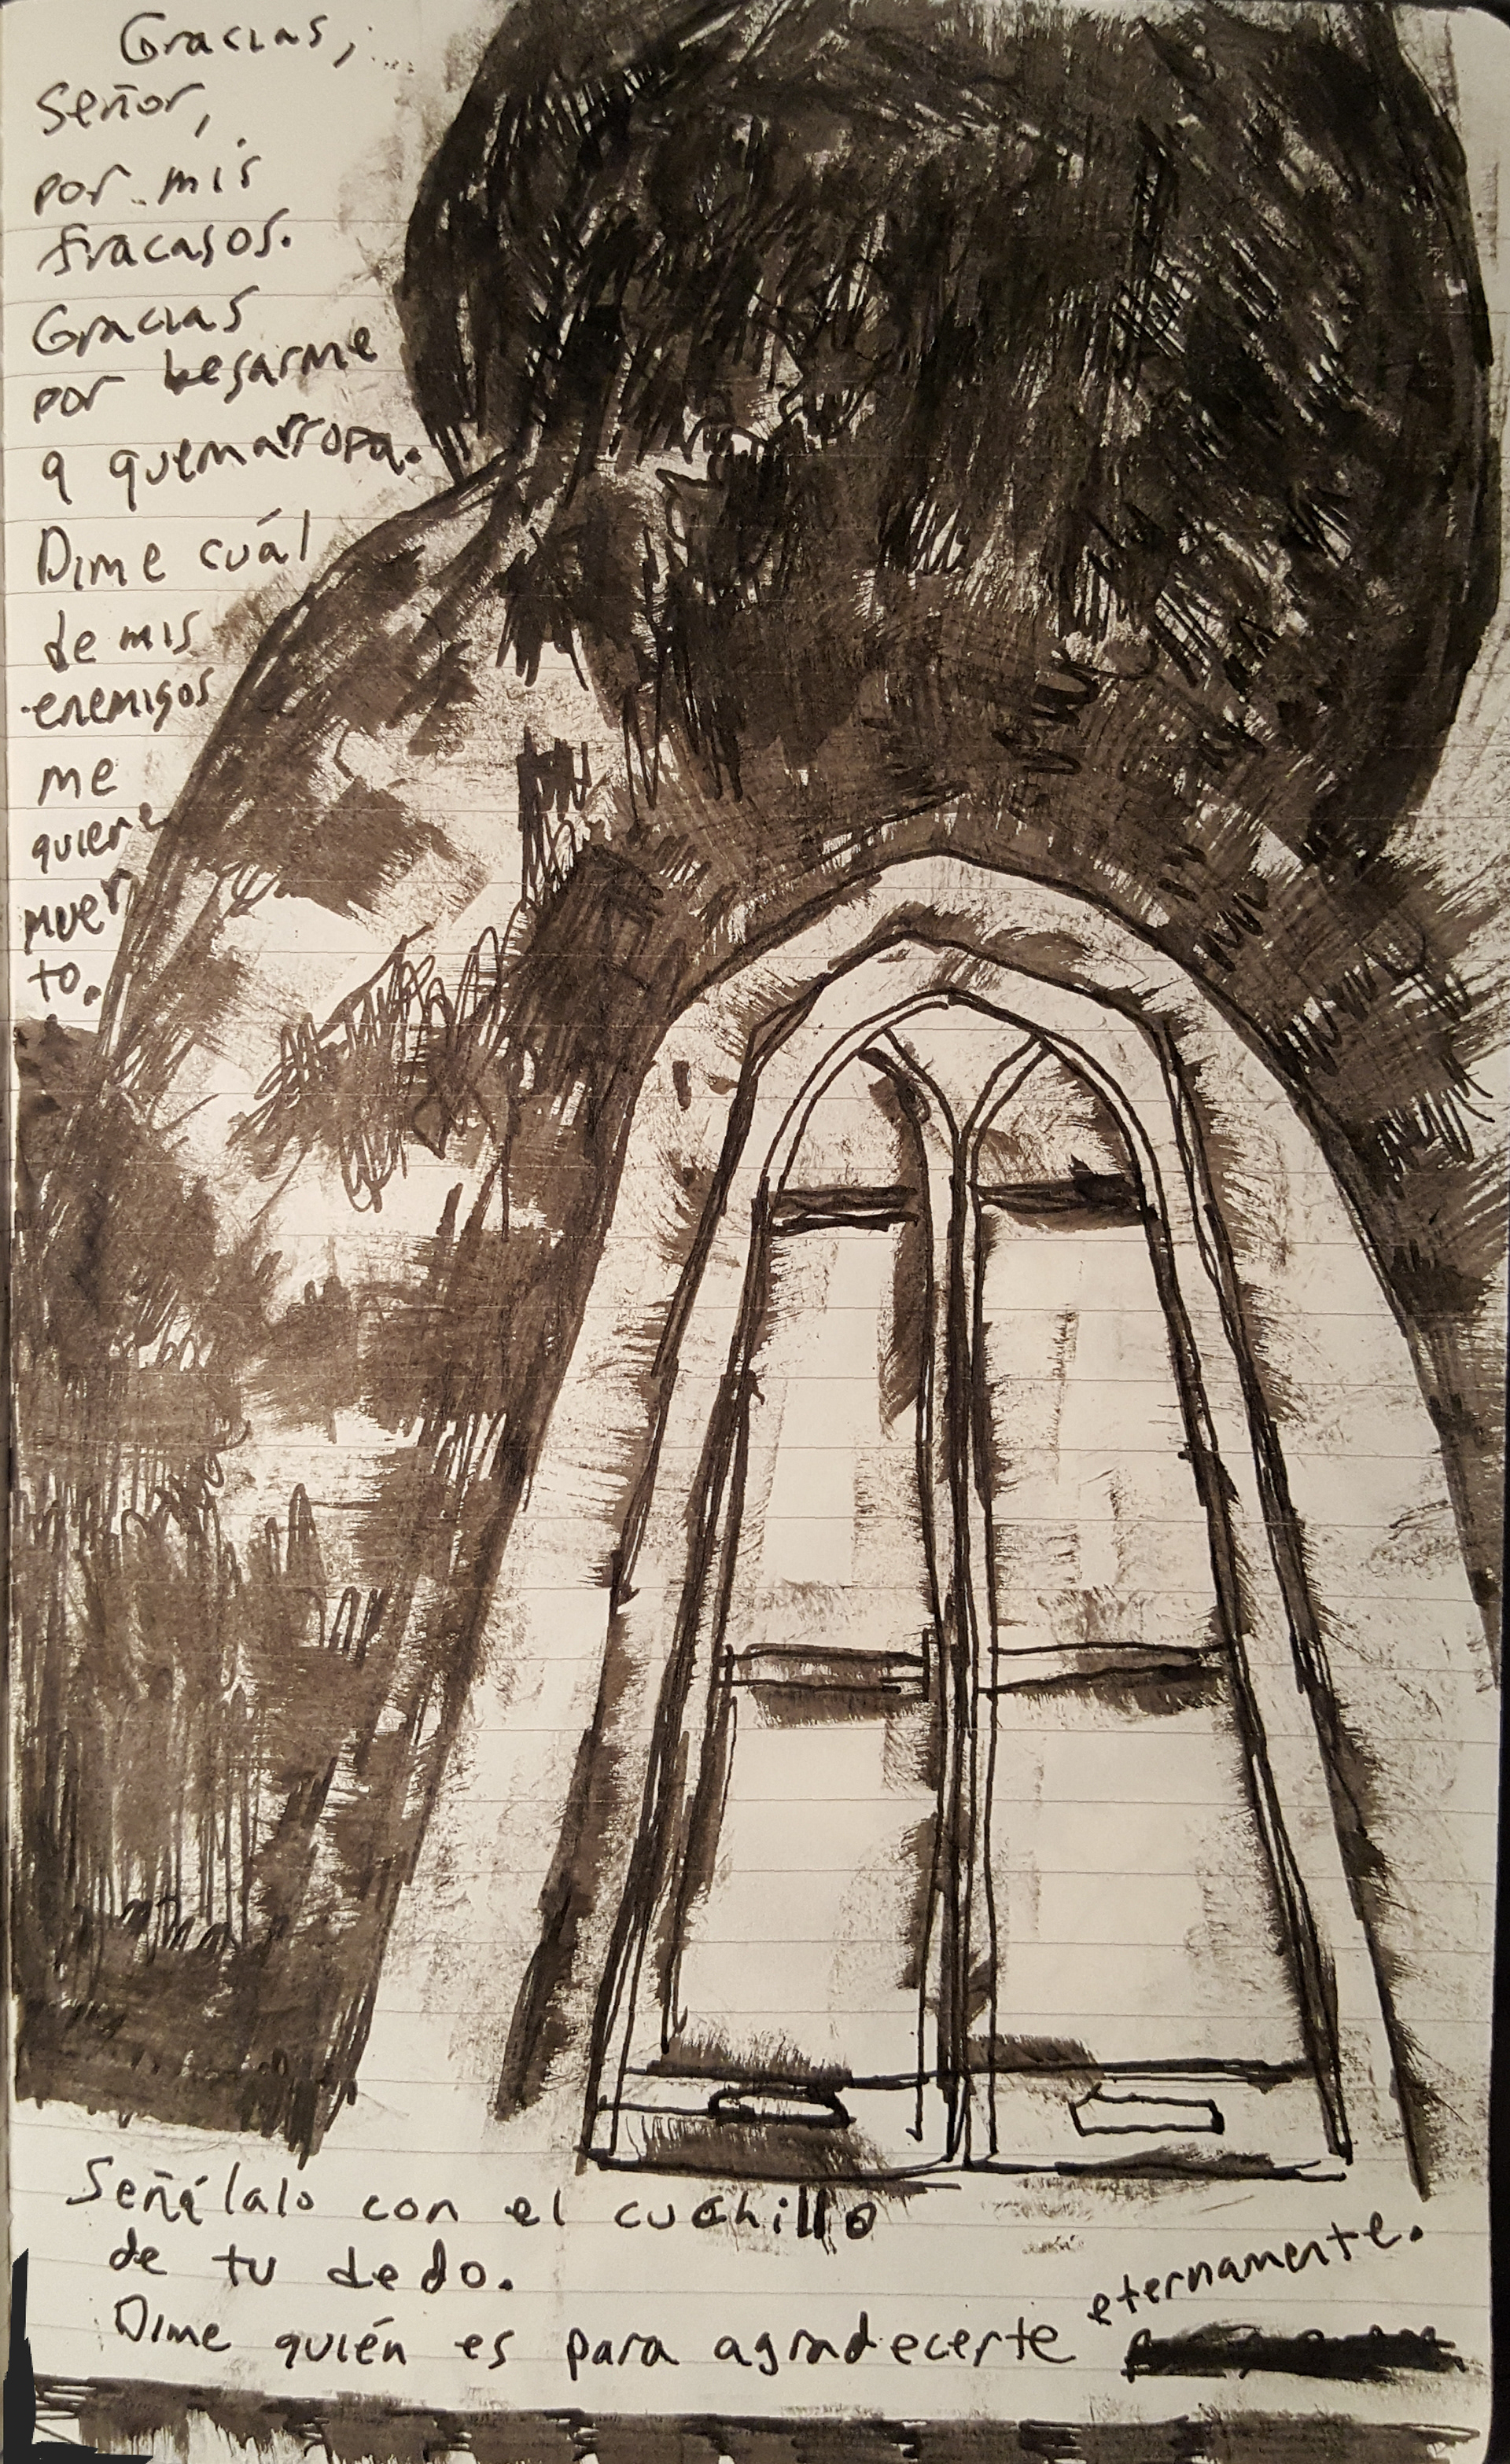 Gracias,
Señor,
por mis
fracasos.
Gracias
por besarme
a quemarropa.
Dime cuál
de mis
enemigos
me
quiere
muer
to.
Señálalo con el cuchillo
de tu dedo.
Dime quién es para agradecerte eternamente.